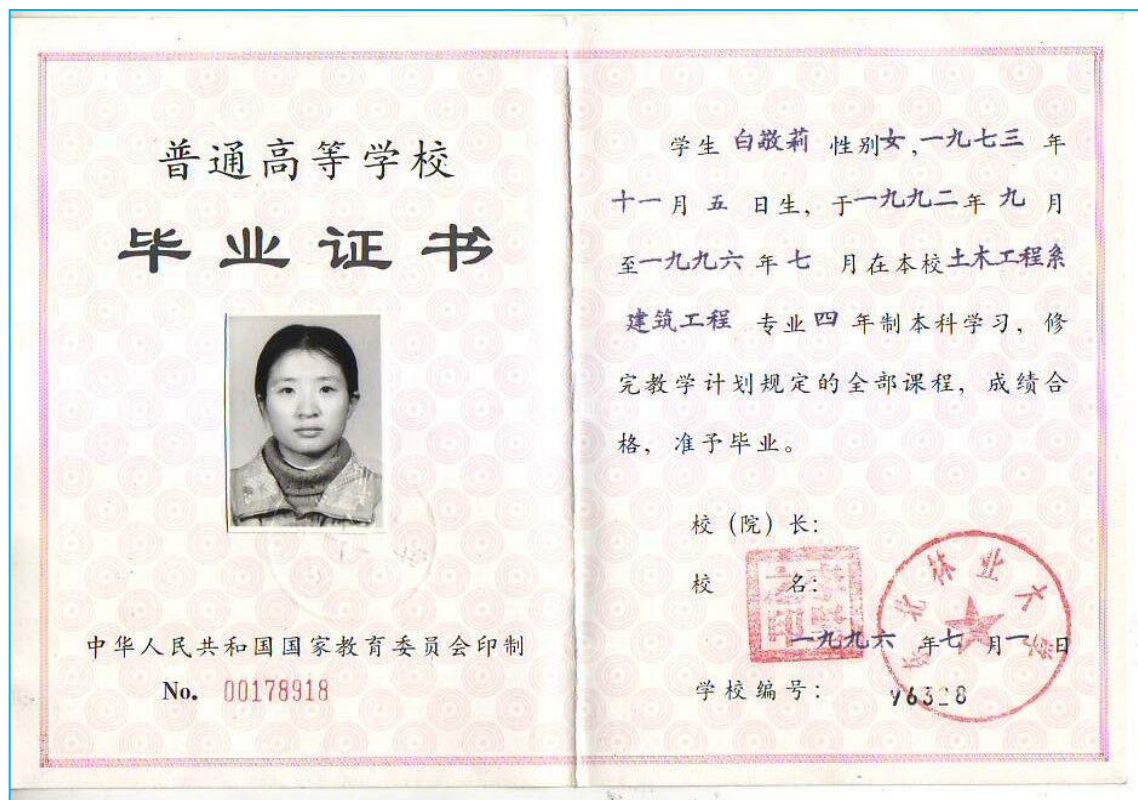 普通高等学校
毕业证书
中华人民共和国国家教育委员会印制
No. 00178918
学生 白敬莉 性别女,一九七三 年
十一月 五 日生，于一九九二年 九 月
至一九九六 年 七 月在本校土木工程系
建筑工程 专业 四 年制本科学习，修
完教学计划规定的全部课程，成绩合
格，准予毕业。
校（院）长：
校 名：
东北林业大学
一九九六 年七 月一日
学校编号： 96328